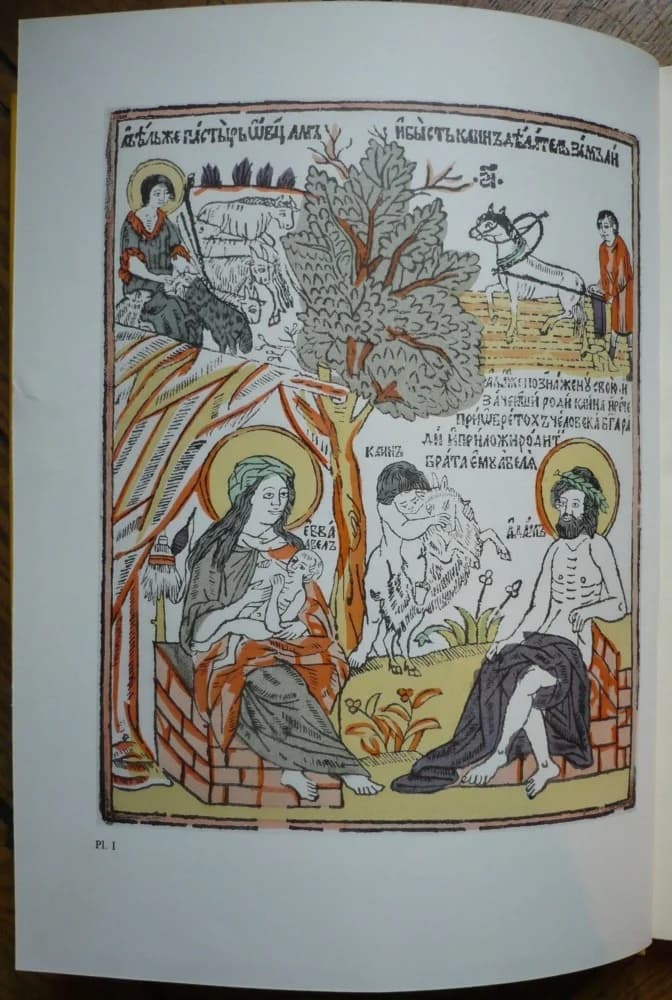 А҆́вѣльже па́стырь ѡ҆ве́цамъ
и҆бы́сть ка́инъ дѣ́латель земъли́
А҆да́мъже позна̀ жену̀ свою̀. и
заче́нши родѝ ка́ина и҆речѐ
приѡ҆брето́хъ человека бг҃ара
ди и҆ приложи родит
брата е҆мꙋ а҆веля
каи́нъ
є҆́вва
авелъ
а҆да́мъ
Pl. I